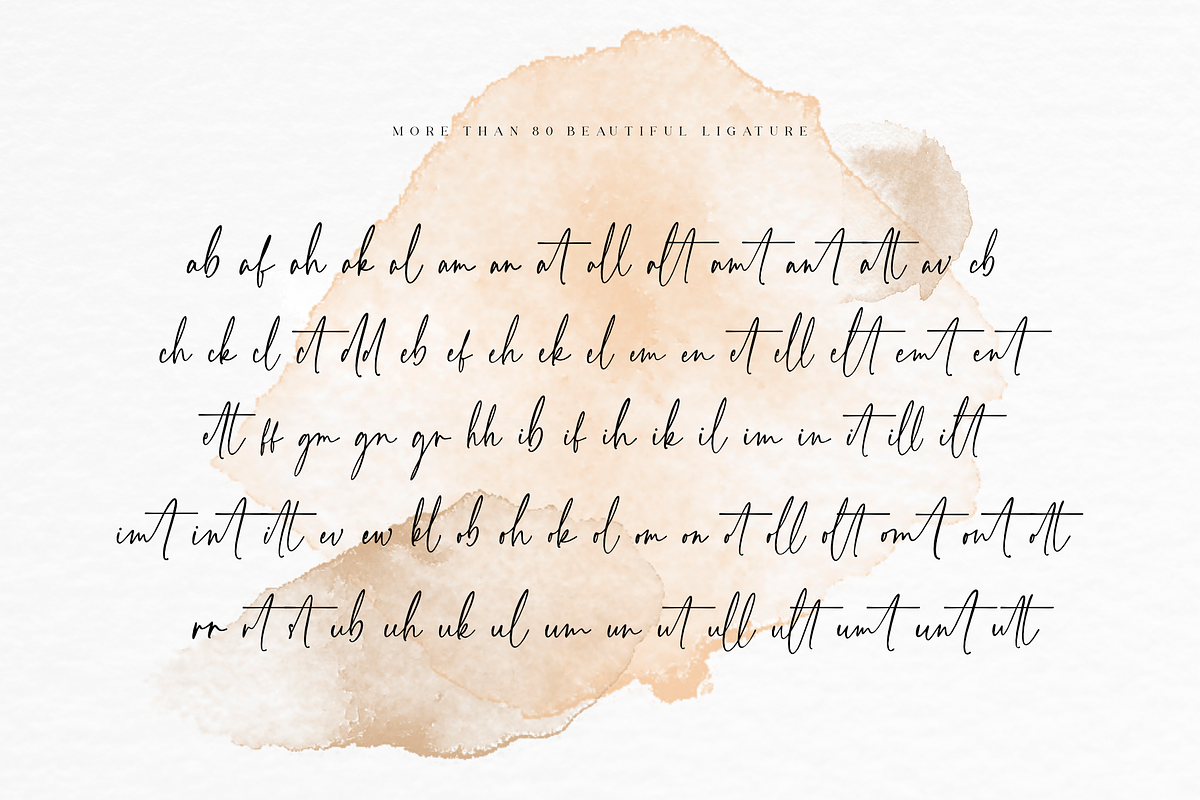 MORE THAN 80 BEAUTIFUL LIGATURE
ab af ah ak al am an at all alt amt ant att av cb
ch ck cl ct dd eb ef eh ek el em en et ell elt emt ent
ett ff gm gn gr hh ib if ih ik il im in it ill ilt
imt int itt ev ew kl ob oh ok ol om on ot oll olt omt ont ott
rr rt st ub uh uk ul um un ut ull ult umt unt utt